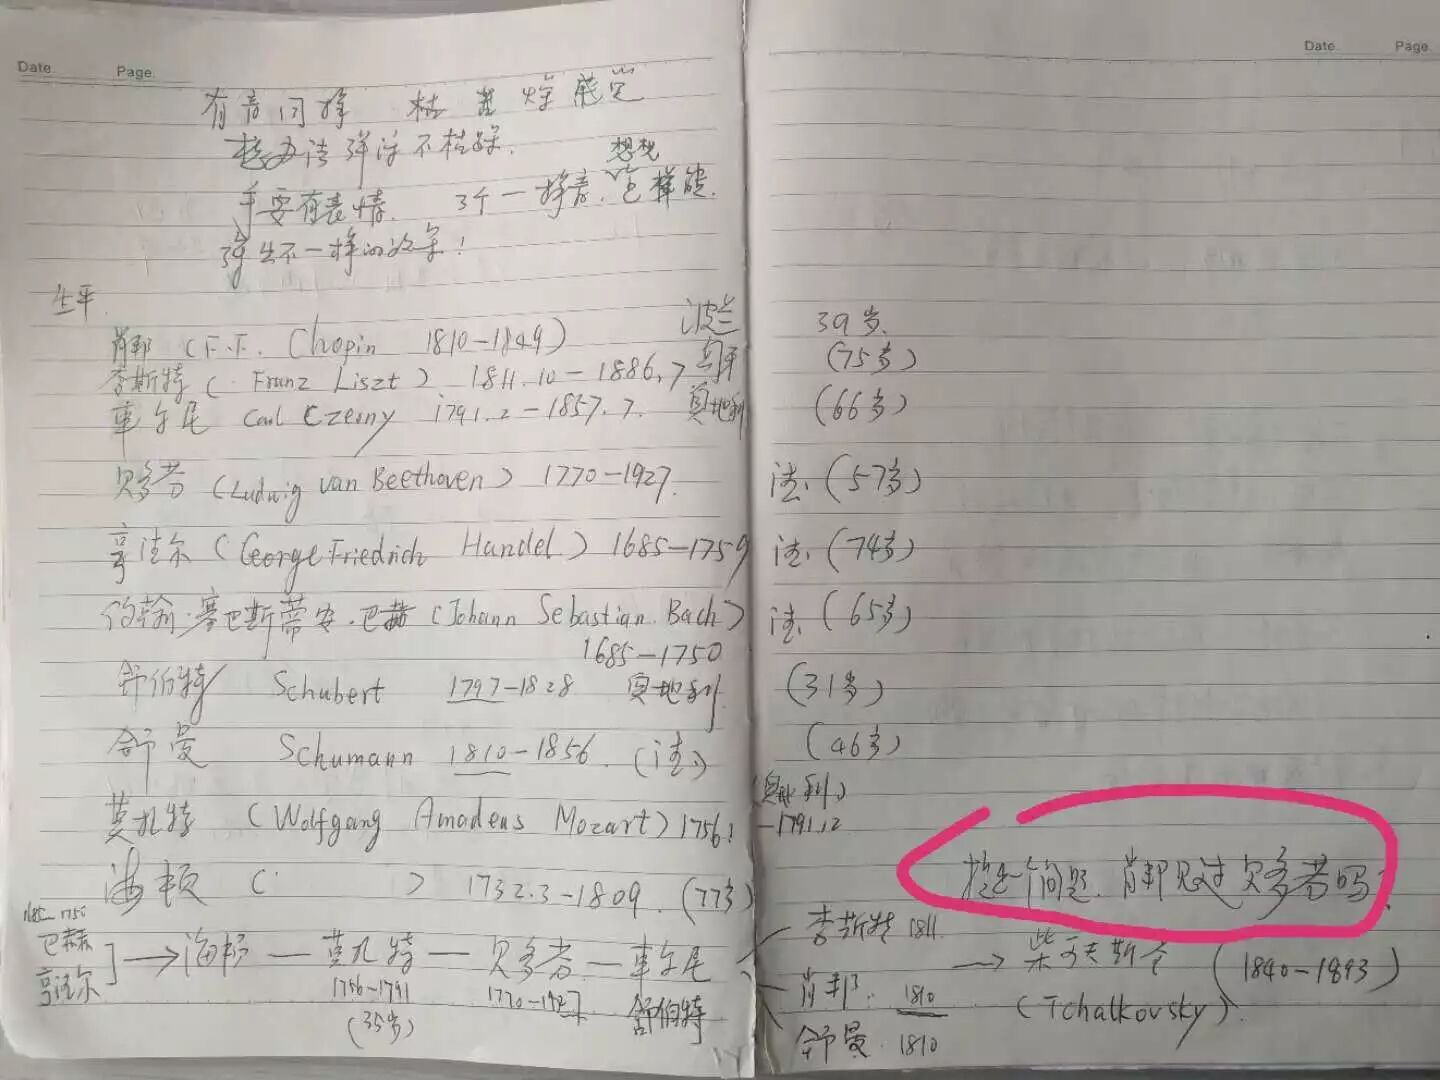 Date. Page.
有音同弹
想办法弹活不枯燥.
想想
手要有表情. 3个一样音. 怎样能
弹出不一样的效果!
生平
肖邦 (F.F. Chopin 1810-1849) 波兰
李斯特 ( Franz Liszt ) 1811.10-1886.7
车尔尼 Carl Czerny 1791.2-1857.7. 奥地利
贝多芬 (Ludwig van Beethoven) 1770-1927.
亨德尔 (George Friedrich Handel) 1685-1759
约翰.塞巴斯蒂安.巴赫 (Johann Sebastian Bach)
1685-1750
舒伯特 Schubert 1797-1828 奥地利.
舒曼 Schumann 1810-1856. (德)
莫扎特 (Wolfgang Amadeus Mozart) 1756.1
海顿 ( ) 1732.3-1809. (77岁)
1685-1750
巴赫
亨德尔
→ 海顿 — 莫扎特 — 贝多芬 — 车尔尼
1756-1791 1770-1927 舒伯特
(35岁)
Date. Page.
39岁.
(75岁)
(66岁)
德. (57岁)
德. (74岁)
德. (65岁)
(31岁)
(46岁)
(奥地利)
-1791.12
提出问题. 肖邦见过贝多芬吗?
李斯特 1811.
→ 柴可夫斯基 (1840-1893)
肖邦. 1810
(Tchalkovsky).
舒曼. 1810